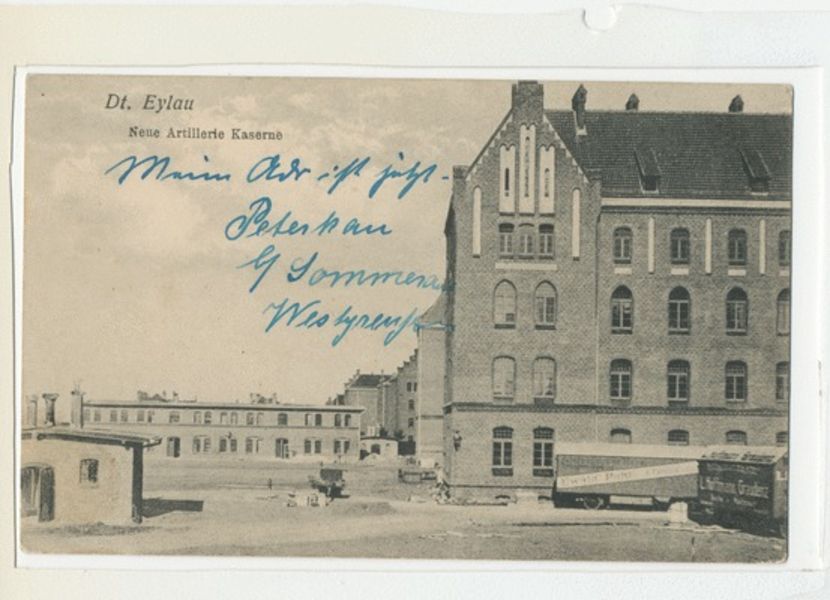 Dt. Eylau
Neue Artillerie Kaserne
Mein Adr ist jetzt
Peterkau
b/ Sommerau
Westpreußen